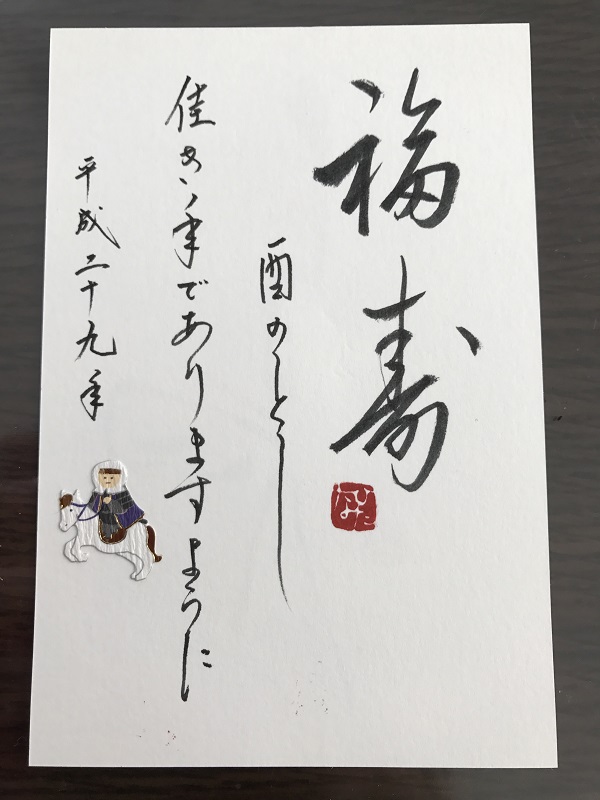 福寿
酉のとし
佳き年でありますように
平成二十九年